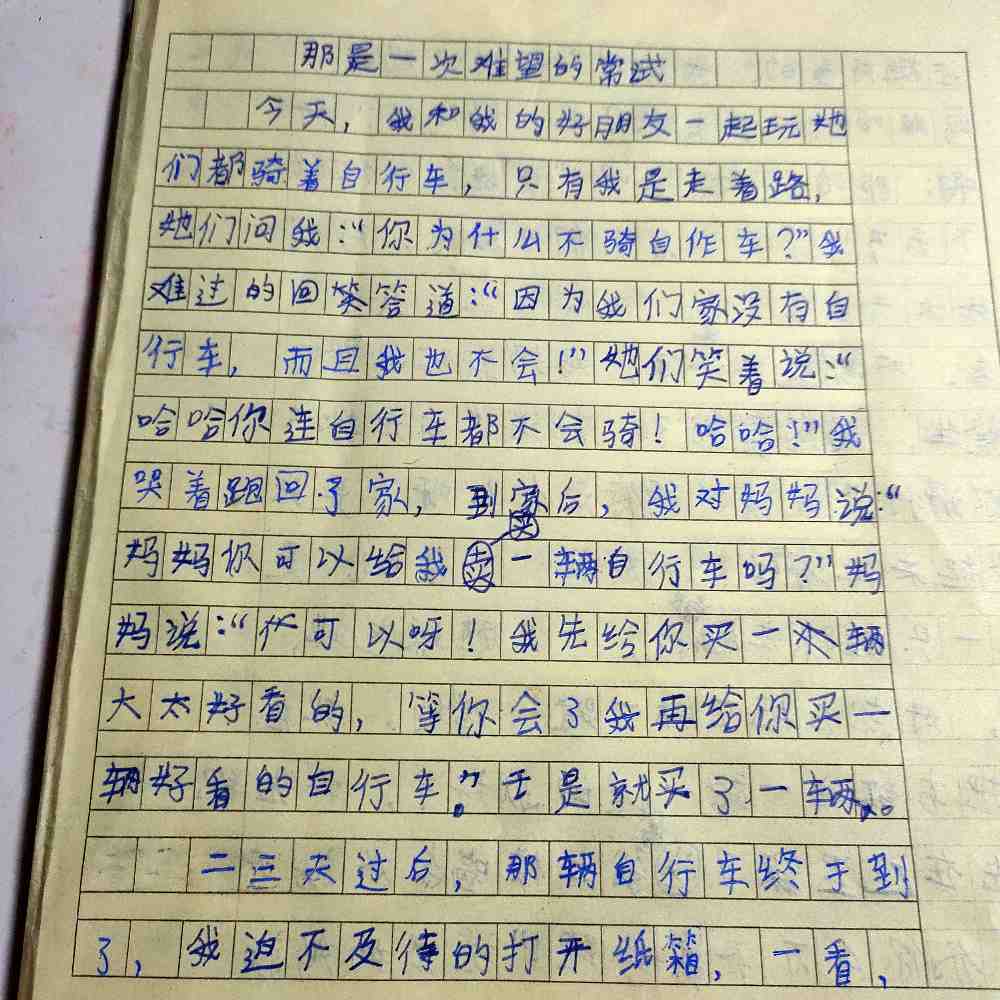 那是一次难望的常试
今天，我和我的好朋友一起玩她
们都骑着自行车，只有我是走着路，
她们问我：“你为什么不骑自作车？”我
难过的回笑答道：“因为我们家没有自
行车，而且我也不会！”她们笑着说：“
哈哈你连自行车都不会骑！哈哈！”我
哭着跑回了家，到家后，我对妈妈说：“
买
妈妈你可以给我卖一辆自行车吗？”妈
妈说：“可以呀！我先给你买一辆
大太好看的，等你会了我再给你买一
辆好看的自行车。”于是就买了一辆。
二三天过后，那辆自行车终于到
了，我迫不及待的打开纸箱，一看，